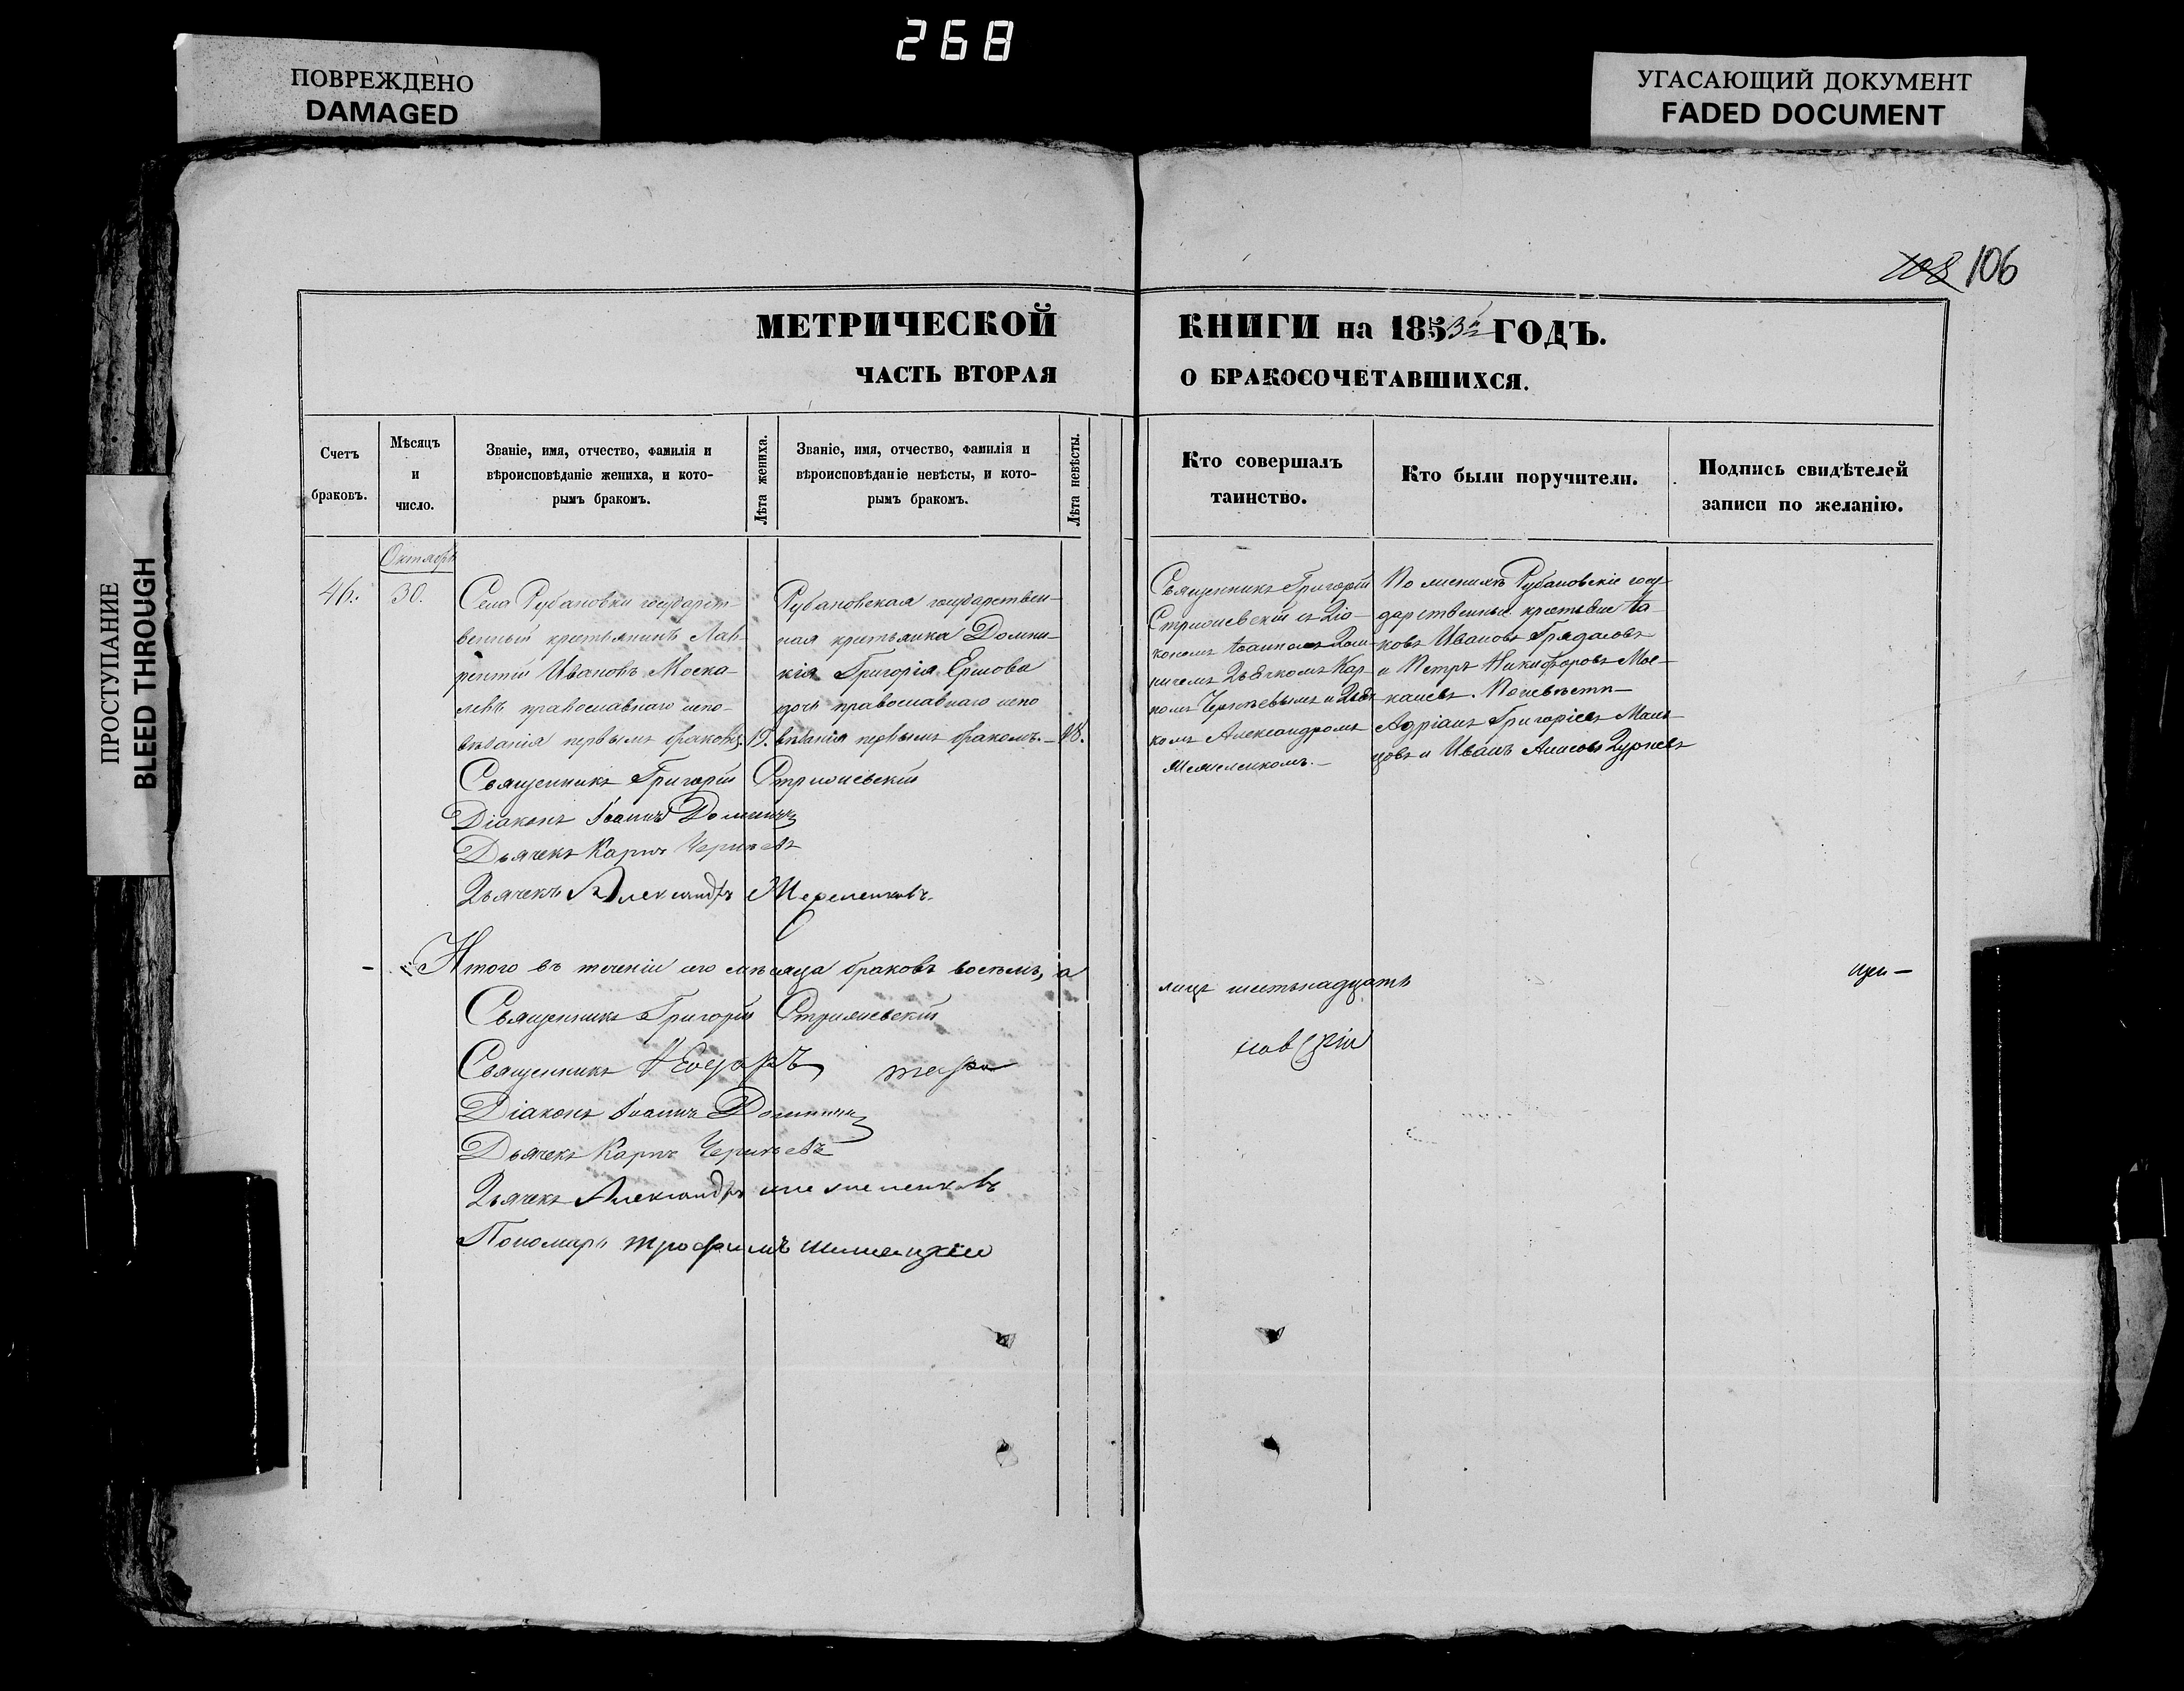 268
ПОВРЕЖДЕНО
DAMAGED
УГАСАЮЩИЙ ДОКУМЕНТ
FADED DOCUMENT
ПРОСТУПАНИЕ
BLEED THROUGH
108 106
МЕТРИЧЕСКОЙ КНИГИ на 1853й ГОДЪ.
ЧАСТЬ ВТОРАЯ О БРАКОСОЧЕТАВШИХСЯ.
Счетъ
браковъ.
Мѣсяцъ
и
число.
Званіе, имя, отчество, фамилія и
вѣроисповѣданіе жениха, и кото-
рымъ бракомъ.
Лѣта жениха.
Званіе, имя, отчество, фамилія и
вѣроисповѣданіе невѣсты, и кото-
рымъ бракомъ.
Лѣта невѣсты.
Кто совершалъ
таинство.
Кто были поручители.
Подпись свидѣтелей
записи по желанію.
Октябрь
46.
30.
Села Рубановки государст-
венный крестьянинъ Лав-
рентій Ивановъ Моска-
левъ православнаго испо-
вѣданія первымъ бракомъ.
19.
Рубановская государствен-
ная крестьянка Домни-
кія Григорія Ершова
дочь православнаго испо
вѣданія первымъ бракомъ.
18.
Священникъ Григорій
съ Діа-
кономъ Іоанномъ Доли-
Дьячкомъ Кар-
помъ и Дьяч-
комъ Александромъ
По женихѣ Рубановскіе госу-
дарственные крестьяне Іа-
ковъ Ивановъ
и Петръ Никифоровъ Мос-
калевъ. По невѣстѣ
Адріанъ Григоріевъ
и Иванъ
Священникъ Григорій
Діаконъ Іоаннъ
Дьячекъ Карпъ
Дьячекъ Александръ
Итого въ теченіи сего мѣсяца браковъ восемь, а
лицъ шестьнадцать
Священникъ Григорій
Священникъ
Діаконъ Іоаннъ
Дьячекъ Карпъ
Дьячекъ Александръ
Пономарь Трофимъ